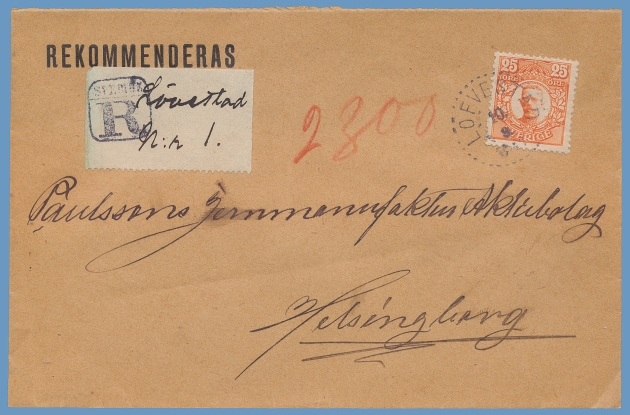 REKOMMENDERAS
SVERIGE
R
Lövestad
N:r 1.
2300
25 25
ÖRE ÖRE
SVERIGE
LOEVE
10
Paulssons Jernmanufaktur Aktiebolag
Helsingborg